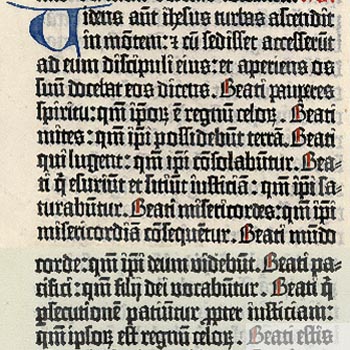 Videns aūt ihesus turbas ascendit
in mōtem: ⁊ cū sedisset accesserūt
ad eum discipuli eius: et aperiens os
suū docebat eos dicens. Beati pauperes
spiritu: qm̄ ip̄oꝝ ē regnū celoꝝ. Beati
mites: qm̄ ip̄i possidebūt terrā. Beati
qui lugent: qm̄ ip̄i cōsolabūtur. Bea-
ti q̄ esuriūt et sitiūt iusticiā: qm̄ ip̄i sa-
turabūtur. Beati misericordes: qm̄ ip̄i
misericordiā cōsequētur. Beati mūdo
corde: qm̄ ip̄i deum videbūt. Beati pa-
cifici: qm̄ filij dei vocabūtur. Beati q̄
ꝑsecutionē patiūtur ꝓpter iusticiam:
qm̄ ipsoꝝ est regnū celoꝝ. Beati estis